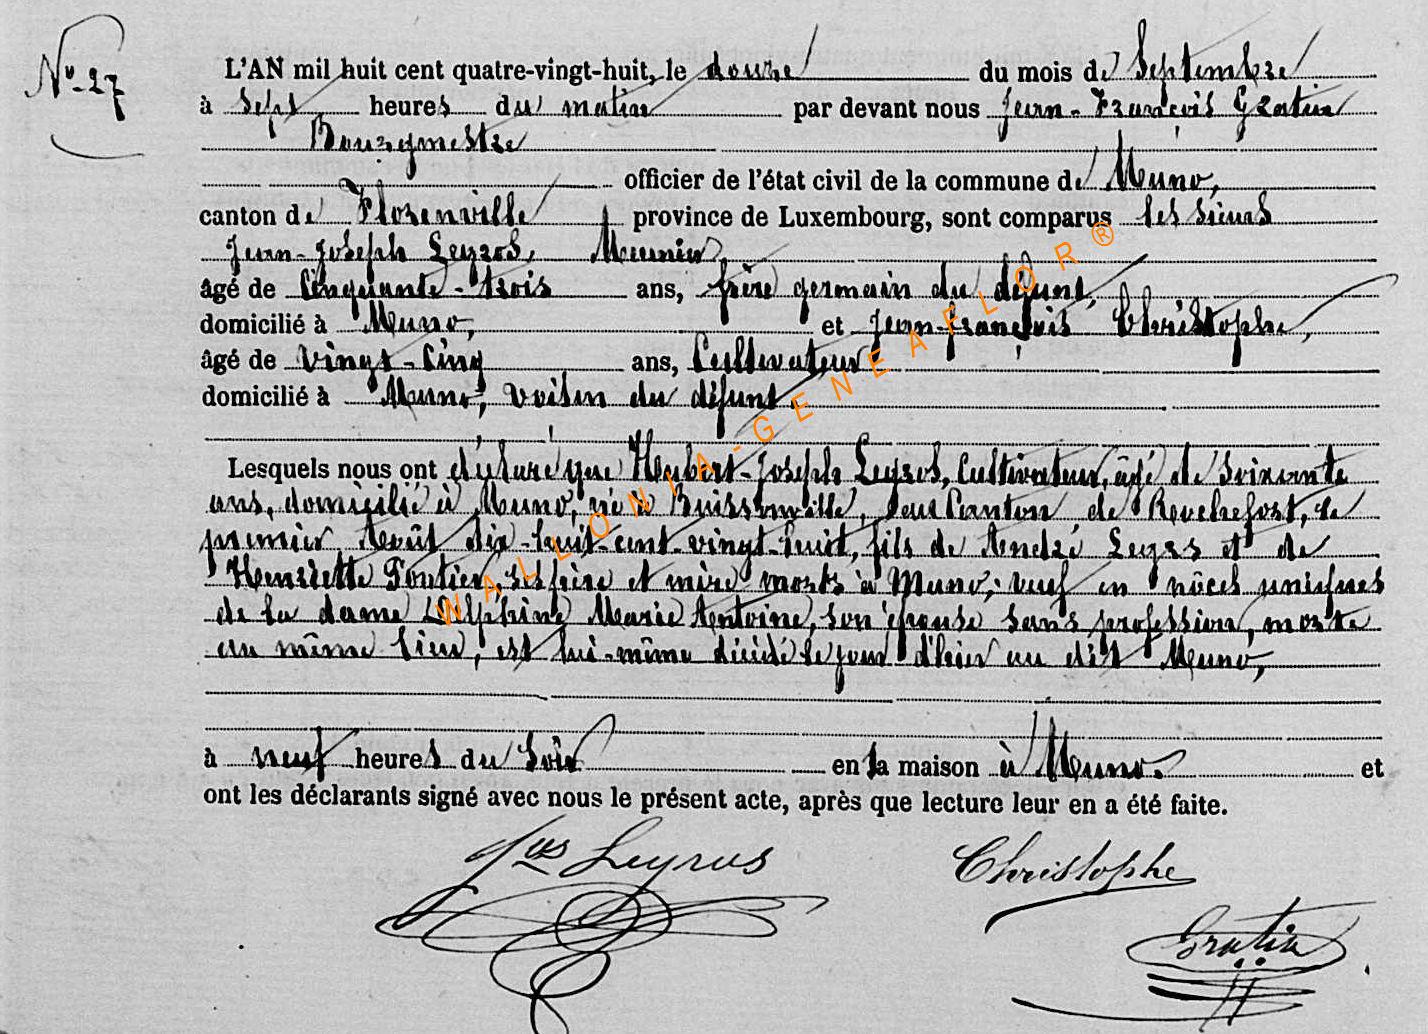 N° 27
L'AN mil huit cent quatre-vingt-huit, le douze du mois de Septembre
à Sept heures du matin par devant nous Jean-François Gratia
Bourgmestre
officier de l'état civil de la commune de Muno,
canton de Florenville province de Luxembourg, sont comparus les sieurs
Jean-Joseph Leyros, Meunier,
âgé de Cinquante-trois ans, frère germain du défunt,
domicilié à Muno, et Jean-François Christophe,
âgé de vingt-cinq ans, Cultivateur
domicilié à Muno, voisin du défunt.
Lesquels nous ont déclaré que Hubert-Joseph Leyros, Cultivateur, âgé de soixante
ans, domicilié à Muno, né à Buissonville, Canton de Rochefort, le
premier Août dix-huit-cent-vingt-huit, fils de André Leyros et de
Henriette Pontier, ses père et mère morts à Muno; veuf en nôces uniques
de la dame Delphine Marie Antoine, son épouse sans profession, morte
au même lieu, est lui-même décédé le jour d'hier au dit Muno,
à neuf heures du Soir en la maison à Muno. et
ont les déclarants signé avec nous le présent acte, après que lecture leur en a été faite.
Jph Leyros Christophe
Gratia
WALLONIA-GENEAFLOR®